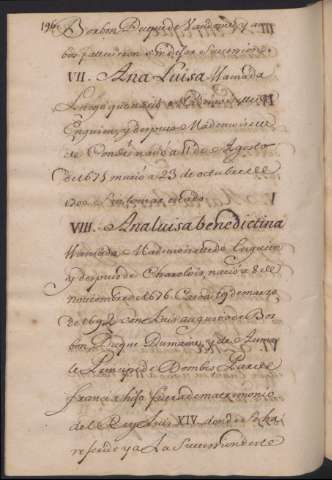 196
Borbon Duque de Vandoma, y am
bos fallecieron sin dejar sucecion.
VII. Ana Luisa llamada
Madmoiselle
Enguien, y despues Madmoiselle
de Condé nació a 11 de Agosto
de 1675 murió a 23 de octubre de
1700
VIII. Ana luisa benedictina
llamada Madmoiselle de Enguien
y despues de Charolois, nació a 8 de
noviembre de 1676. Casó a 19 de marzo
de 1692 con Luis augusto de Bor
bon Duque Dumaine, y de Auma
le Principe de Dombes Par de
francia hijo fuera de matrimonio
del Rey Luis XIV. donde se ha
referido ya La